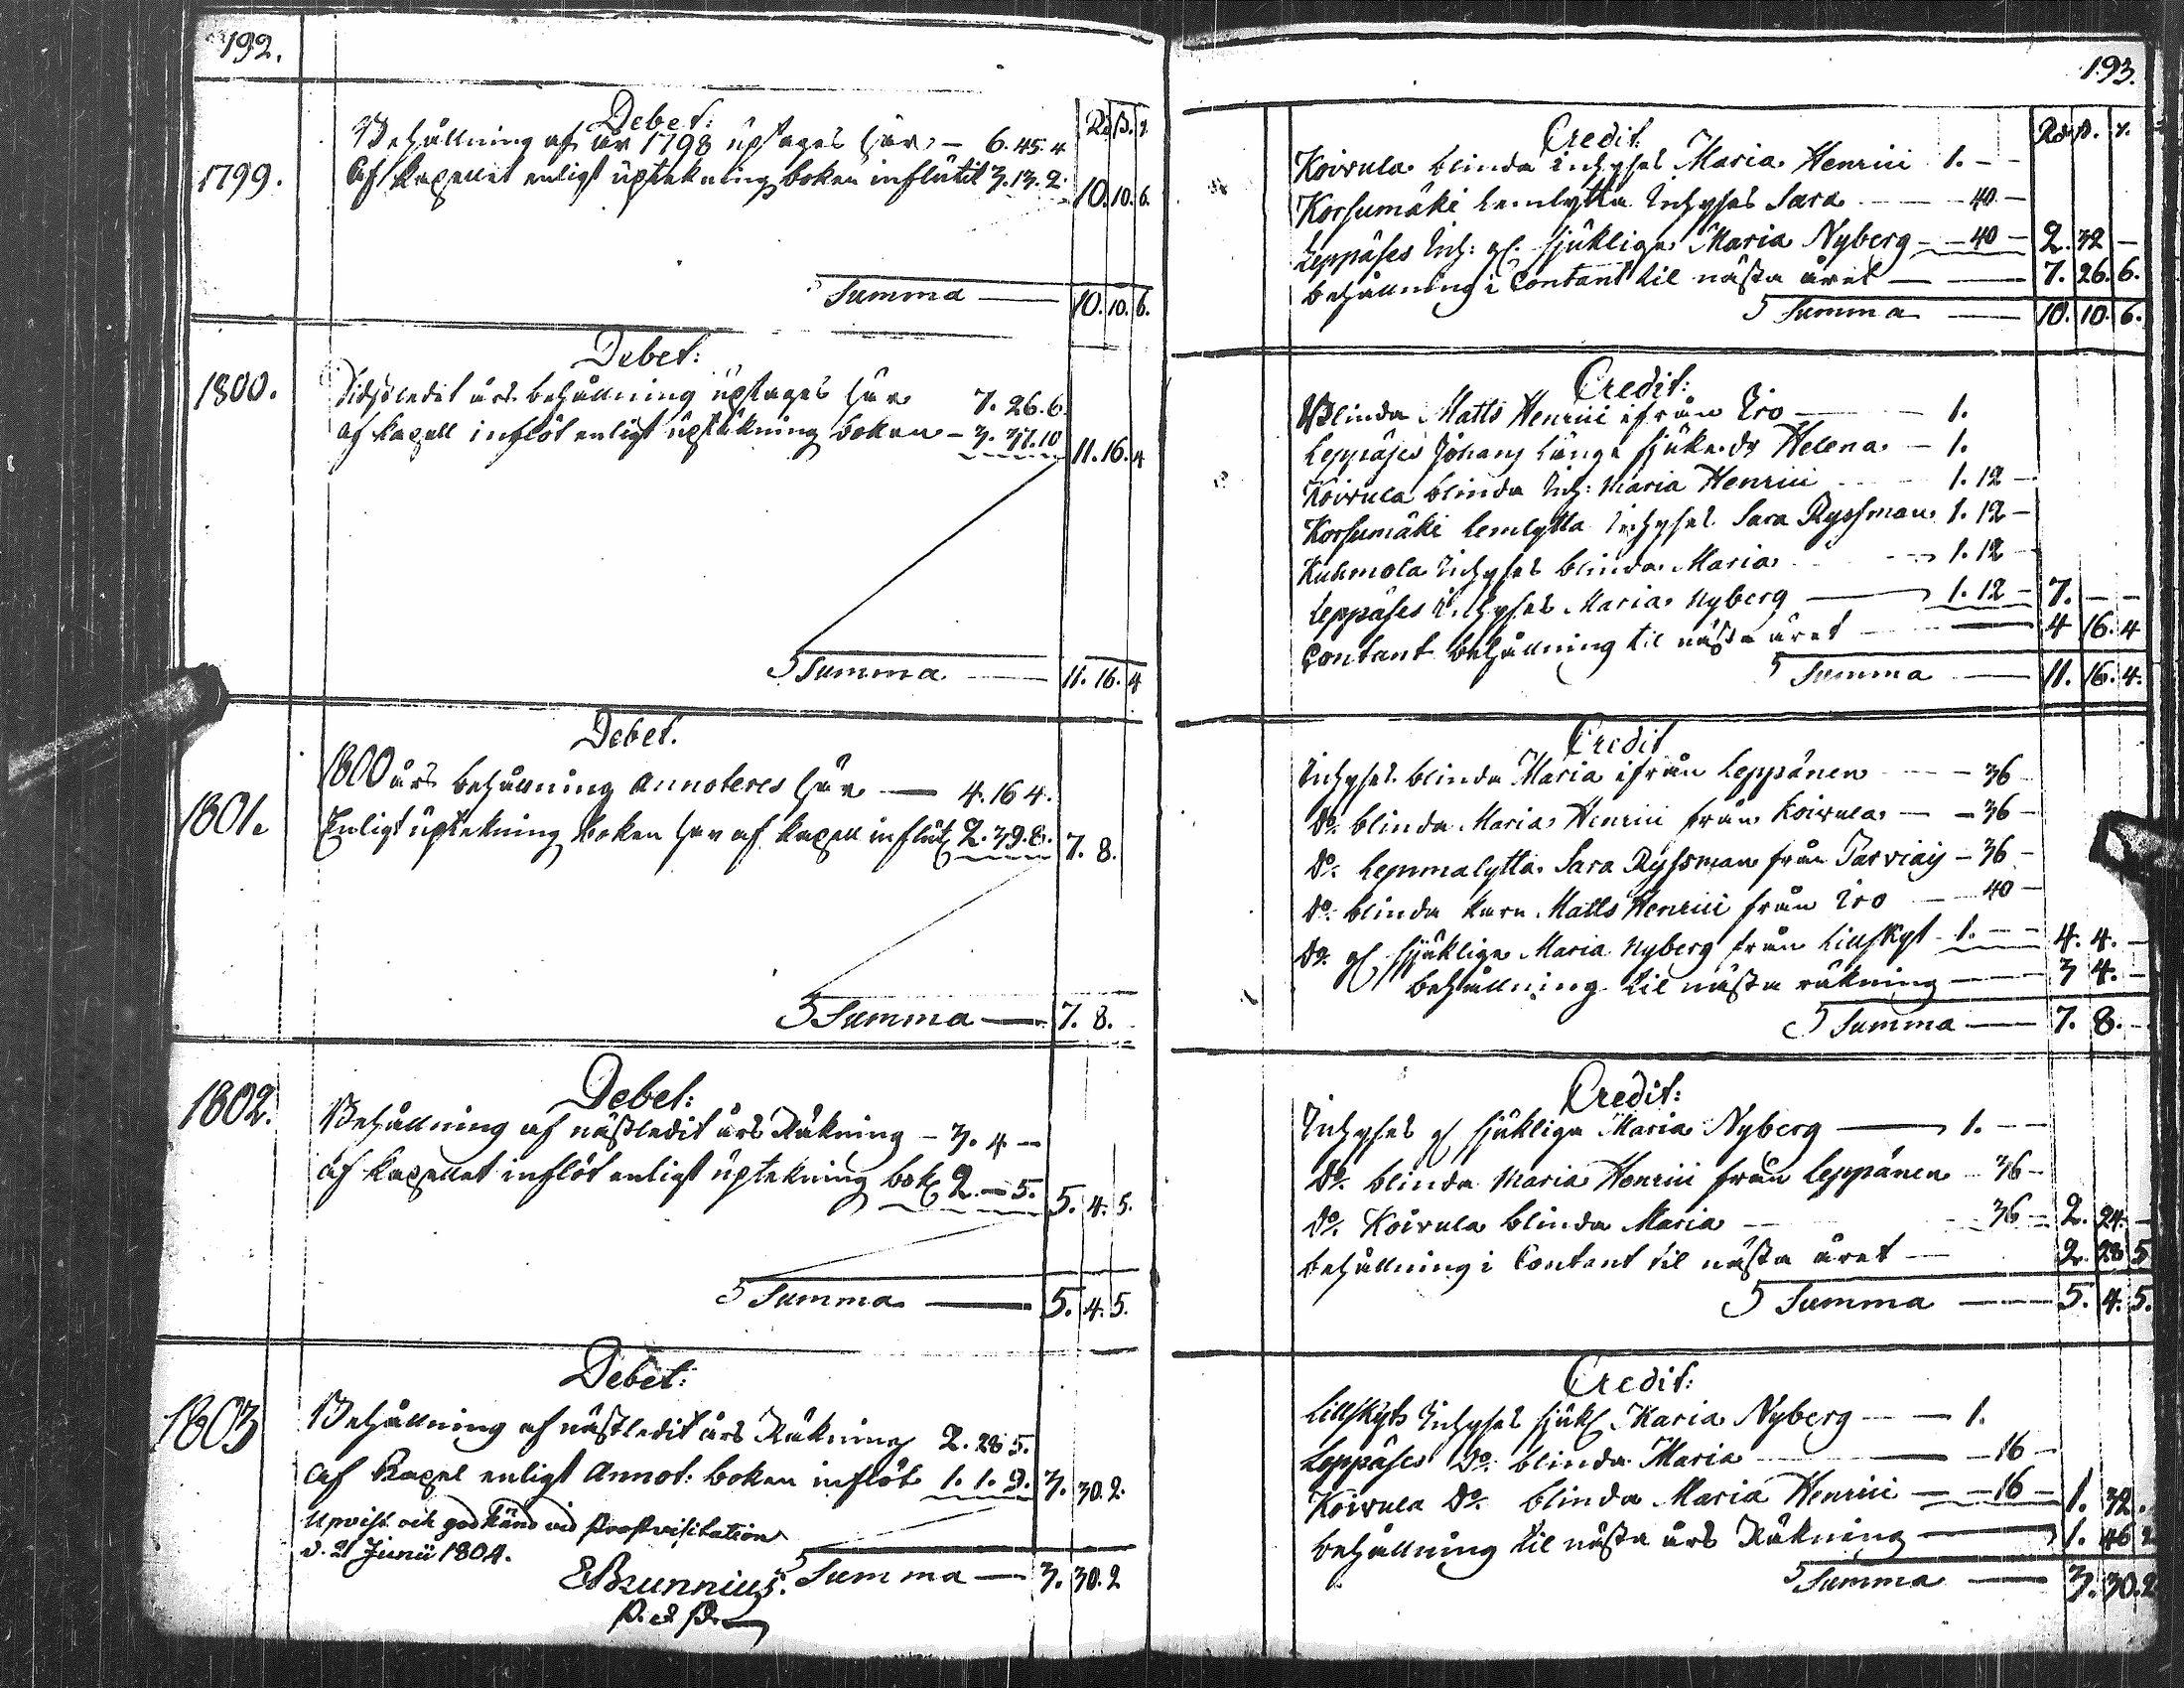 192.
Debet:
Rd ß. r.
Behållning af år 1798 uptages här, — 6. 45. 4
1799.
Af Kapellet enligt uptekning boken influtit 3. 13. 2. 10. 10. 6.
Summa — 10. 10. 6.
Debet:
1800.
Sidstledit års behållning uptages här 7. 26. 6.
af Kapell inflöt enligt uptäkning boken — 3. 37. 10 11. 16. 4
Summa — 11. 16. 4
Debet.
1800 års behållning annoteres här — 4. 16 4.
1801.
Enligt uptekning boken har af Kapell influt 2. 39. 8. 7. 8.
Summa — 7. 8.
Debet:
1802.
Behållning af nästledit års Räkning — 3. 4 —
af Kapellet inflöt enligt uptekning bok 2. — 5. 5. 4. 5.
Summa — 5. 4. 5.
Debet:
1803
Behållning af nästledit års Räkning 2. 28 5.
Af Kapel enligt Annot: boken inflöt 1. 1. 9. 3. 30. 2.
Upvist och godkänd vid Prostvisitation
d. 21 Junii 1804.
Summa — 3. 30. 2
EBrunnius.
P. et P.
193.
Credit:
Rd ß. r.
Koivula blinda inhyses Maria Henrici 1. — —
Korsumäki Lemlytta Inhyses Sara — 40. —
Leppäses Inh: sjuklige Maria Nyberg — 40 — 2. 32 —
behållning i Contant til nästa året — 7. 26. 6.
Summa — 10. 10. 6.
Credit:
Blinda Matts Henrici ifrån Iro — 1.
Leppäses Johans länge sjuke dr Helena — 1.
Koivula blinda Inh: Maria Henrici 1. 12 —
Korsumäki Lemlytta Inhyses Sara Ryssman 1. 12 —
Kuhmola Inhyses blinda Maria 1. 12 —
Leppäses Inhyses Maria Nyberg — 1. 12 — 7. — —
Contant behållning til nästa året — 4 16. 4
Summa — 11. 16. 4.
Credit
Inhyses blinda Maria ifrån Leppänen — 36
Do. blinda Maria Henrici från Koivula — 36 —
Do. Lemmalytta Sara Ryssman från — 36 —
Do. blinda karn Matts Henrici från Iro — 40 —
Do. sjuklige Maria Nyberg från Lillskyt 1. — — 4. 4. —
behållning til nästa räkning — 3 4. —
Summa — 7. 8. —
Credit:
Inhyses sjuklige Maria Nyberg — 1. — —
Do. blinda Maria Henrici från Leppänen — 36 —
Do. Koivula blinda Maria — 36 — 2. 24. —
behållning i Contant til nästa året — 2. 28 5
Summa — 5. 4. 5.
Credit:
Lillskyts Inhyses sjukl Maria Nyberg — 1.
Leppäses Do. blinda Maria — 16 —
Koivula Do. blinda Maria Henrici — 16 — 1. 32.
behållning til nästa års Räkning — 1. 46 2
Summa — 3. 30. 2